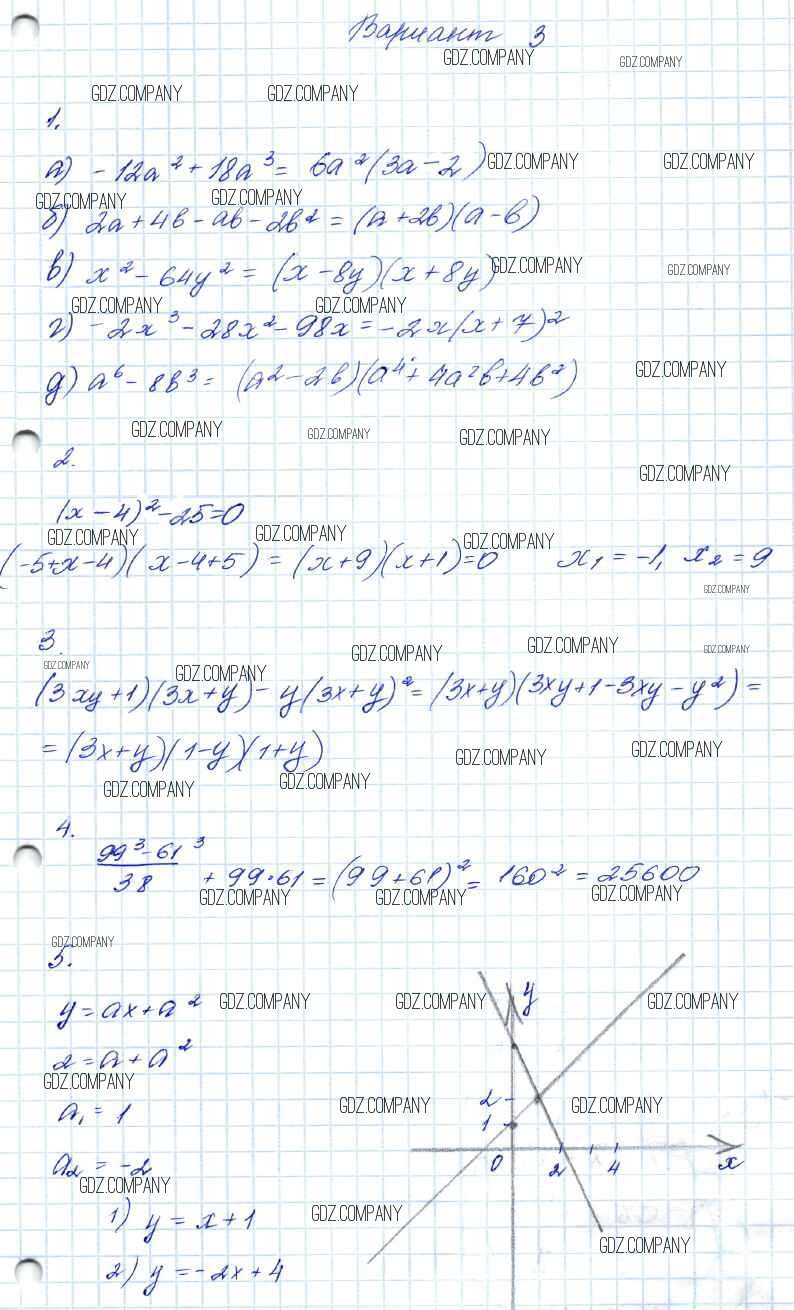 Вариант 3
GDZ.COMPANY GDZ.COMPANY
GDZ.COMPANY GDZ.COMPANY
1.
а) -12a² + 18a³ = 6a²(3a - 2) GDZ.COMPANY GDZ.COMPANY
GDZ.COMPANY GDZ.COMPANY
б) 2a + 4b - ab - 2b² = (a + 2b)(a - b)
в) x² - 64y² = (x - 8y)(x + 8y) GDZ.COMPANY GDZ.COMPANY
GDZ.COMPANY GDZ.COMPANY
г) -2x³ - 28x² - 98x = -2x(x + 7)²
д) a⁶ - 8b³ = (a² - 2b)(a⁴ + 4a²b + 4b²) GDZ.COMPANY
GDZ.COMPANY GDZ.COMPANY GDZ.COMPANY
2.
GDZ.COMPANY
(x - 4)² - 25 = 0
GDZ.COMPANY GDZ.COMPANY GDZ.COMPANY
(-5+x-4)(x-4+5) = (x+9)(x+1)=0 x₁ = -1, x₂ = 9
GDZ.COMPANY
3.
GDZ.COMPANY GDZ.COMPANY GDZ.COMPANY GDZ.COMPANY GDZ.COMPANY
(3xy+1)(3x+y) - y(3x+y)² = (3x+y)(3xy+1-3xy-y²) =
= (3x+y)(1-y)(1+y)
GDZ.COMPANY GDZ.COMPANY
GDZ.COMPANY GDZ.COMPANY
4.
99³ - 61³
38 + 99·61 = (99+61)² = 160² = 25600
GDZ.COMPANY GDZ.COMPANY GDZ.COMPANY
GDZ.COMPANY
5.
y
y = ax + a² GDZ.COMPANY GDZ.COMPANY GDZ.COMPANY
2 = a + a²
GDZ.COMPANY
a₁ = 1 GDZ.COMPANY 2 GDZ.COMPANY
1
a₂ = -2 0 2 4 x
GDZ.COMPANY
1) y = x + 1 GDZ.COMPANY
GDZ.COMPANY
2) y = -2x + 4